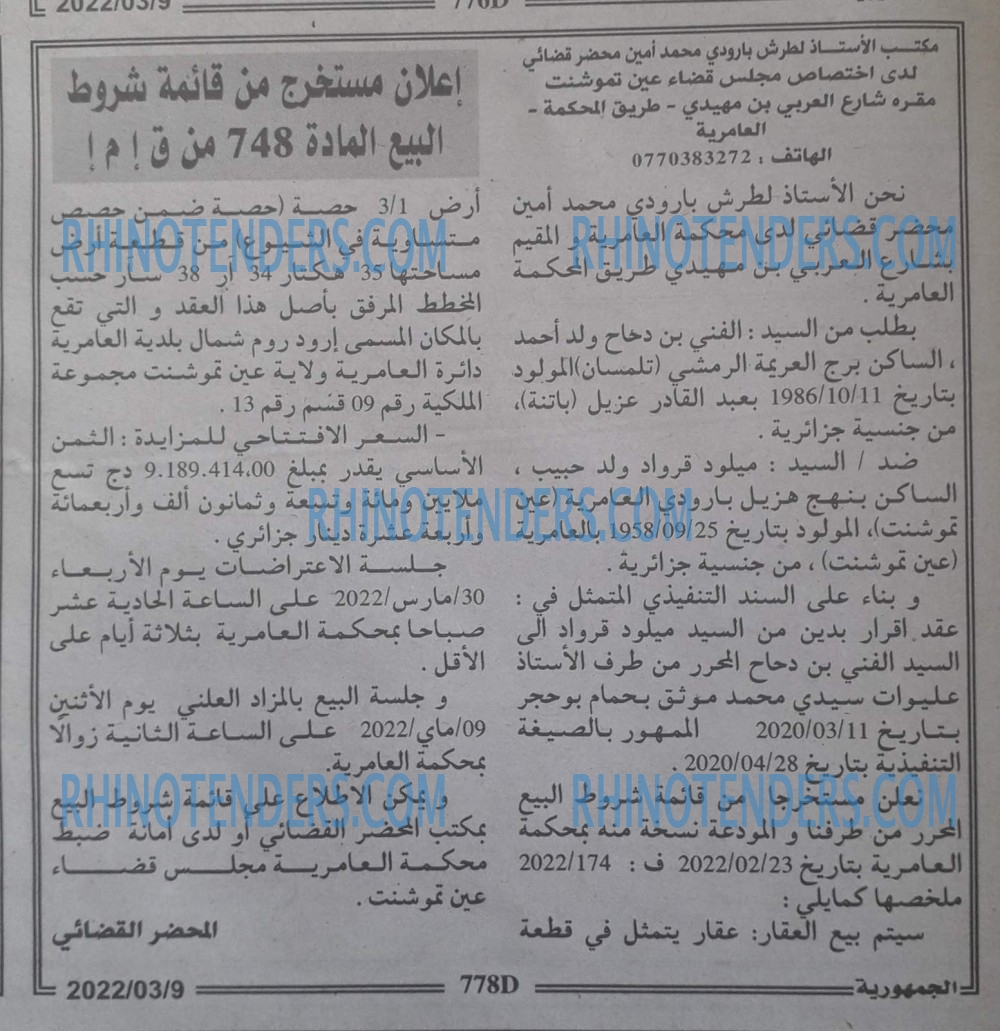 2022/03/9
776D
مكتب الأستاذ لطرش بارودي محمد أمين محضر قضائي
لدى اختصاص مجلس قضاء عين تموشنت
مقره شارع العربي بن مهيدي - طريق المحكمة -
العامرية
الهاتف : 0770383272
نحن الأستاذ لطرش بارودي محمد أمين
محضر قضائي لدى محكمة العامرية و المقيم
بشارع العربي بن مهيدي طريق المحكمة
العامرية .
بطلب من السيد : الفني بن دحاح ولد أحمد
، الساكن برج العريمة الرمشي (تلمسان)المولود
بتاريخ 1986/10/11 بعبد القادر عزيل (باتنة)،
من جنسية جزائرية .
ضد / السيد : ميلود قرواد ولد حبيب ،
الساكن بنهج هزيل بارودي العامرية (عين
تموشنت)، المولود بتاريخ 1958/09/25 بالعامرية
(عين تموشنت) ، من جنسية جزائرية .
و بناء على السند التنفيذي المتمثل في :
عقد اقرار بدين من السيد ميلود قرواد الى
السيد الفني بن دحاح المحرر من طرف الأستاذ
عليوات سيدي محمد موثق بحمام بوحجر
بتاريخ 2020/03/11 الممهور بالصيغة
التنفيذية بتاريخ 2020/04/28 .
نعلن مستخرجا من قائمة شروط البيع
المحرر من طرفنا و المودعة نسخة منه بمحكمة
العامرية بتاريخ 2022/02/23 ف : 2022/174
ملخصها كمايلي :
سيتم بيع العقار: عقار يتمثل في قطعة
إعلان مستخرج من قائمة شروط
البيع المادة 748 من ق إ م إ
أرض 3/1 حصة (حصة ضمن حصص
متساوية في الشيوع) من قطعة أرض
مساحتها 35 هكتار 34 أر 38 سآر حسب
المخطط المرفق بأصل هذا العقد و التي تقع
بالمكان المسمى إرود روم شمال بلدية العامرية
دائرة العامرية ولاية عين تموشنت مجموعة
الملكية رقم 09 قسم رقم 13 .
- السعر الافتتاحي للمزايدة : الثمن
الأساسي يقدر بمبلغ 9.189.414.00 دج تسع
ملايين ومائة وتسعة وثمانون ألف وأربعمائة
وأربعة عشرة دينار جزائري .
جلسة الاعتراضات يوم الأربعاء
30/مارس/2022 على الساعة الحادية عشر
صباحا بمحكمة العامرية بثلاثة أيام على
الأقل .
و جلسة البيع بالمزاد العلني يوم الأثنين
09/ماي/2022 على الساعة الثانية زوالا
بمحكمة العامرية.
و يمكن الاطلاع على قائمة شروط البيع
بمكتب المحضر القضائي أو لدى أمانة ضبط
محكمة العامرية مجلس قضاء
عين تموشنت .
المحضر القضائي
الجمهورية
778D
2022/03/9
RHINOTENDERS.COM
RHINOTENDERS.COM
RHINOTENDERS.COM
RHINOTENDERS.COM
RHINOTENDERS.COM